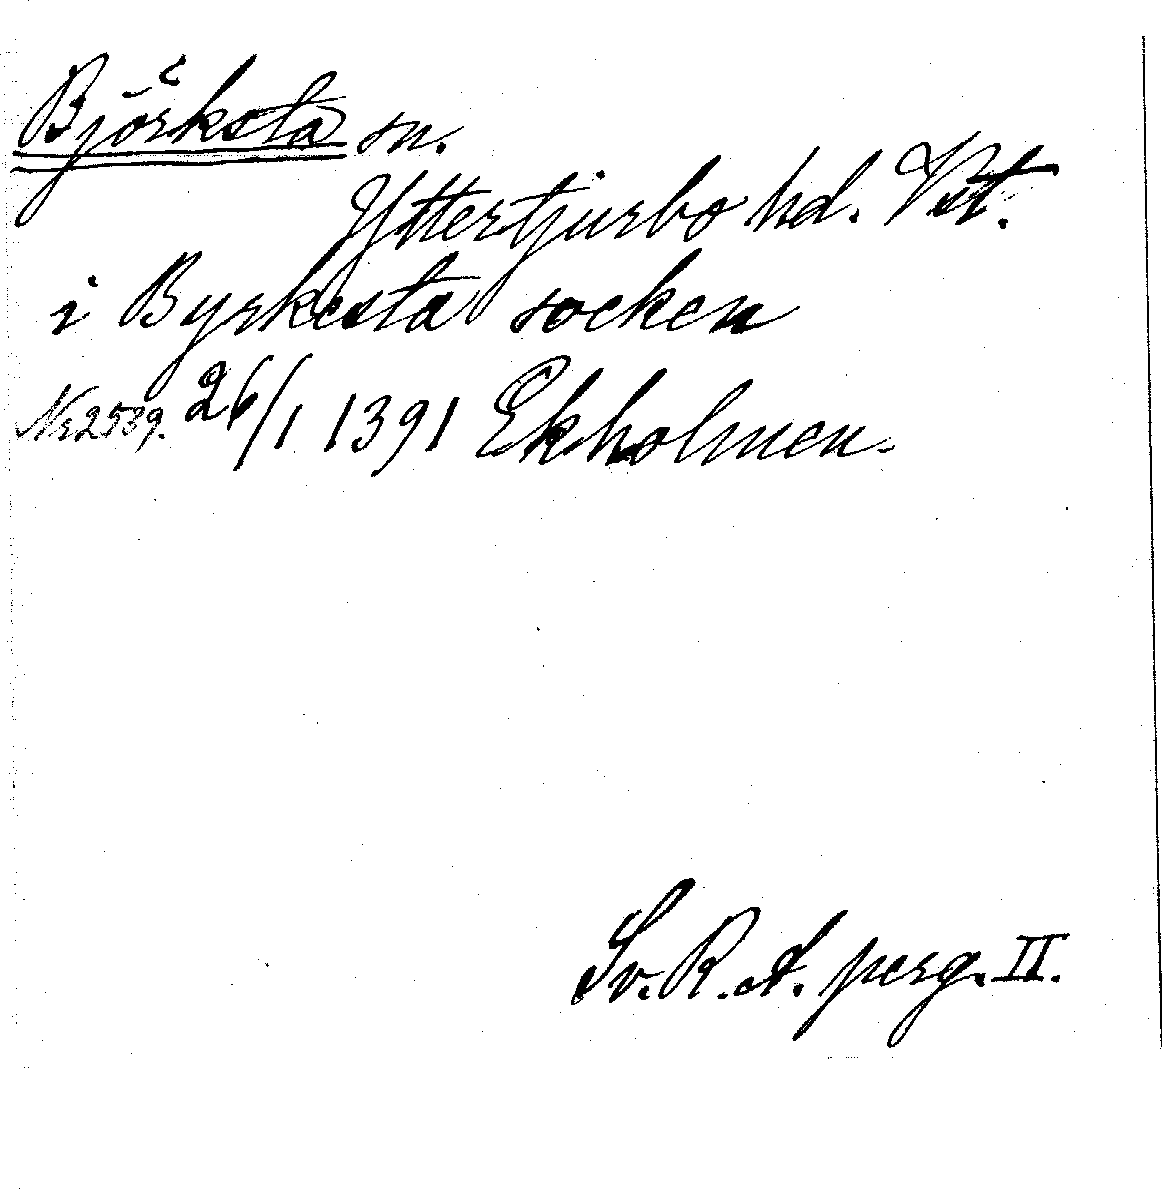 Björksta sn.
Yttertjurbo hd. Vst.
i Byrkesta socken
Nr 2539. 26/1 1391 Ekholmen.
Sv. R. A. perg. II.